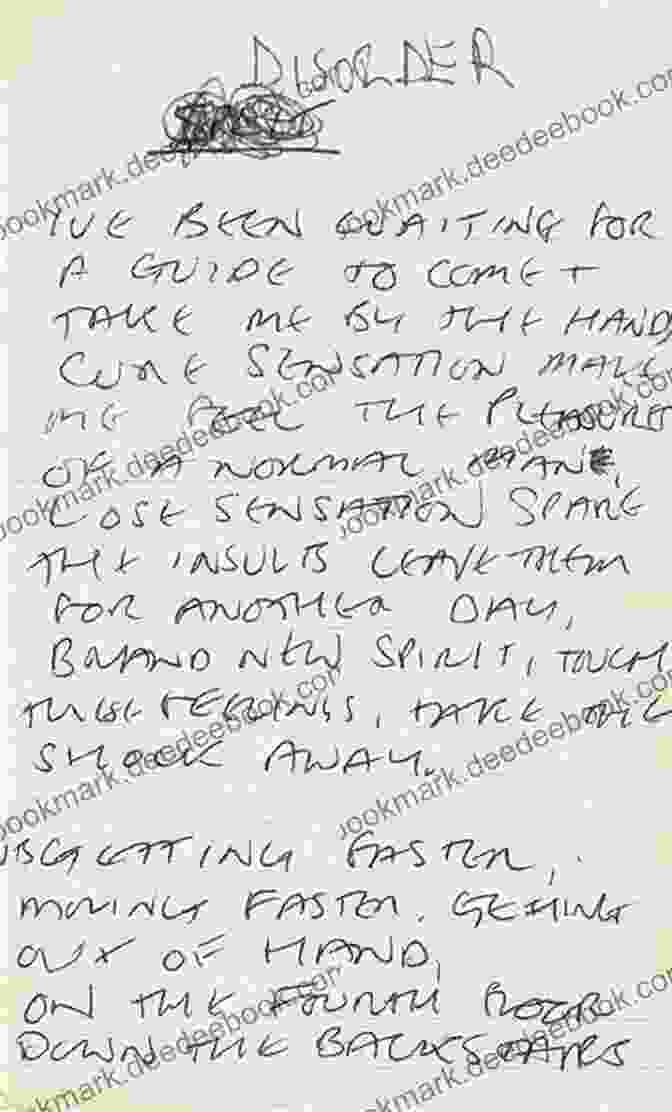 DISORDER
I'VE BEEN WAITING FOR
A GUIDE TO COME +
TAKE ME BY THE HAND
COULD SENSATION MAKE
ME FEEL THE PLEASURES
OF A NORMAL MAN,
LOSE SENSATION SPARE
THE INSULTS LEAVE THEM
FOR ANOTHER DAY,
BRAND NEW SPIRIT, TOUCH
THESE FEELINGS, TAKE THE
SHOCK AWAY.
GETTING FASTER,
MOVING FASTER. GETTING
OUT OF HAND,
ON THE FOURTH FLOOR
DOWN THE BACKSTAIRS
bookmark.deedeebook.com